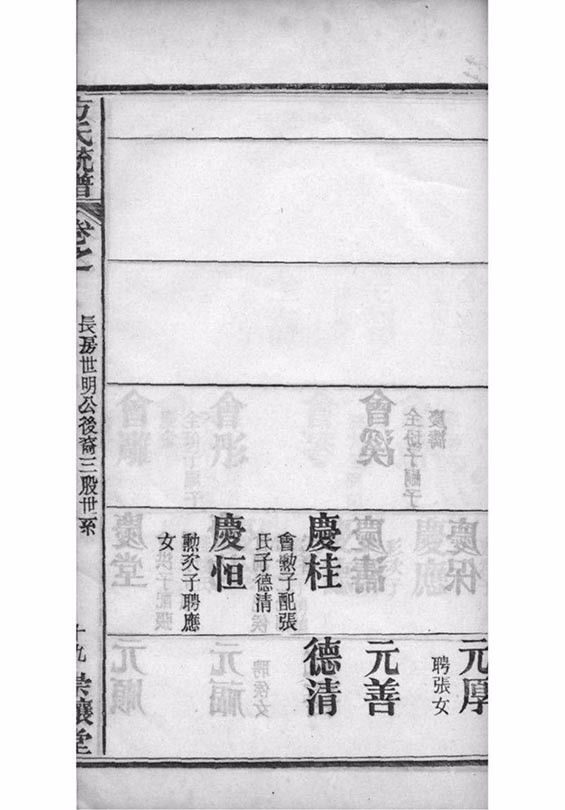 元厚
聘張女
元善
慶桂
會勲子配張
氏子德清
德清
慶恒
勲次子聘應
女
方氏統譜
卷之一
長房世明公後裔三股世系
十九